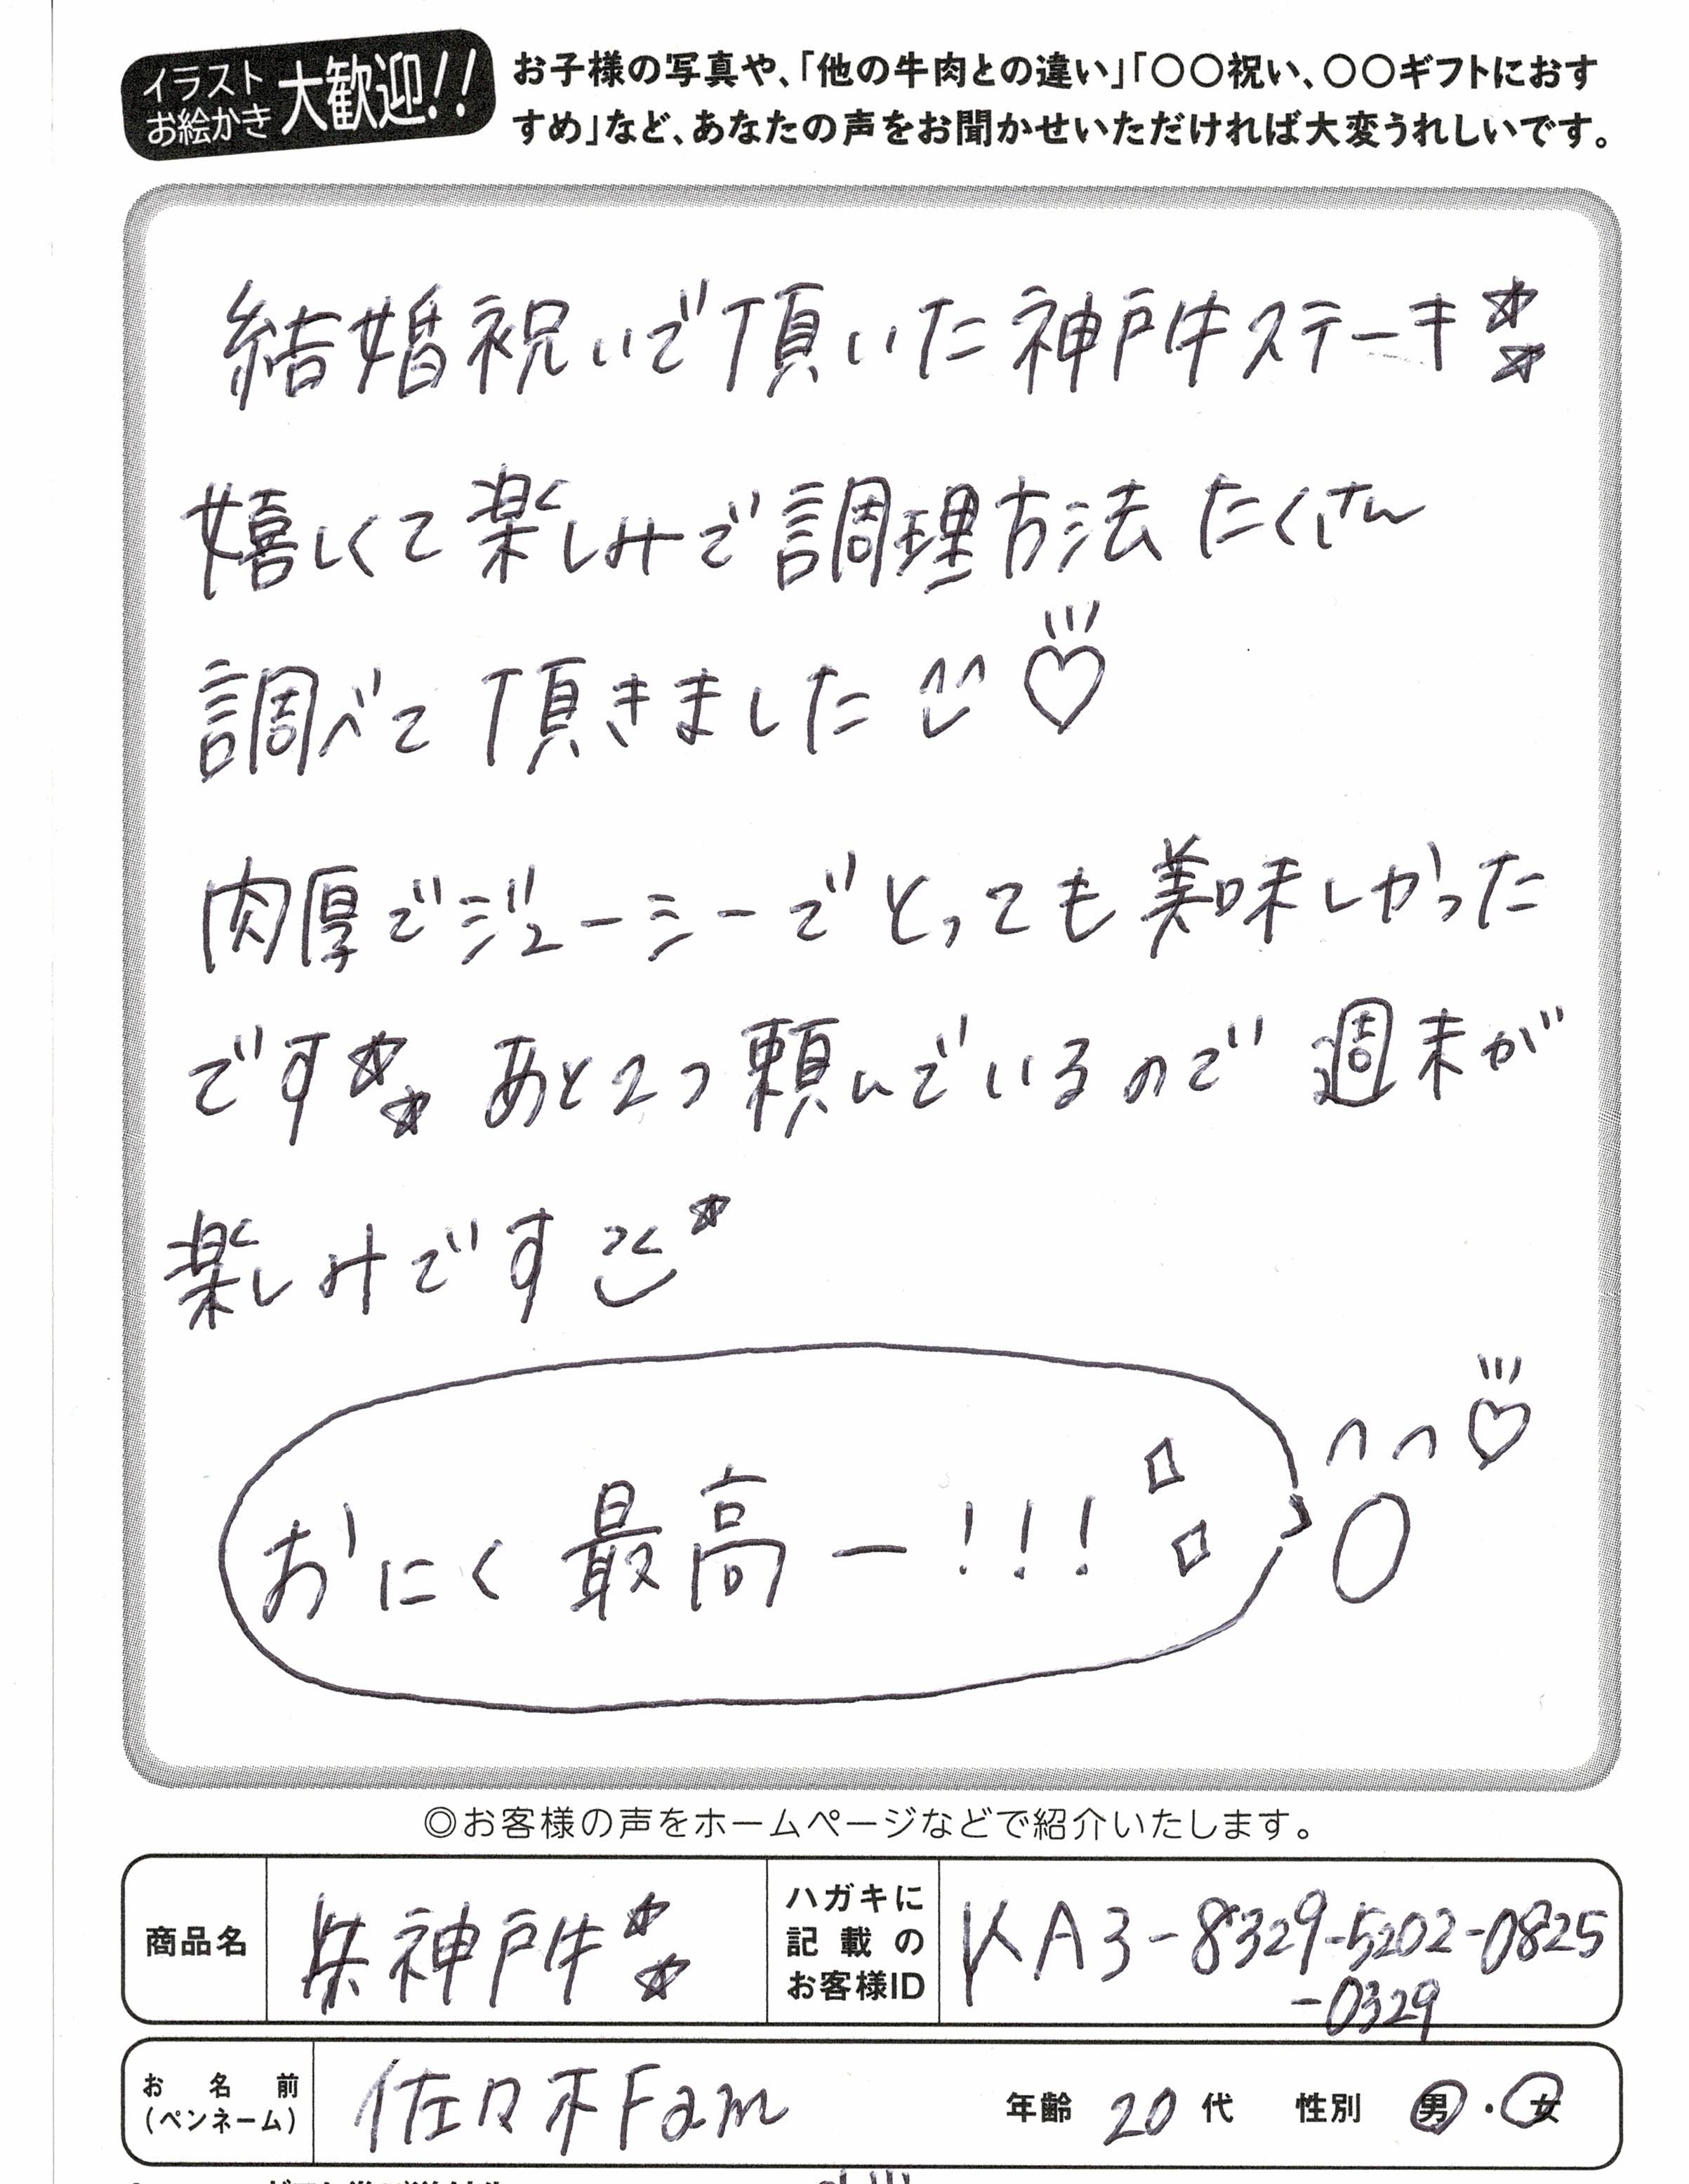 イラスト
お絵かき
大歓迎!!
お子様の写真や、「他の牛肉との違い」「〇〇祝い、〇〇ギフトにおす
すめ」など、あなたの声をお聞かせいただければ大変うれしいです。
結婚祝いで頂いた神戸牛ステーキ☆☆
嬉しくて楽しみで調理方法たくさん
調べて頂きました♡
肉厚でジューシーでとっても美味しかった
です☆☆あと2つ頼んでいるので週末が
楽しみです☆
おにく最高ー!!!
◎お客様の声をホームページなどで紹介いたします。
商品名
神戸牛☆☆
ハガキに
記載の
お客様ID
KA3-8329-5202-0825
-0329
お名前
(ペンネーム)
佐々木Fam
年齢 20 代 性別 男・女